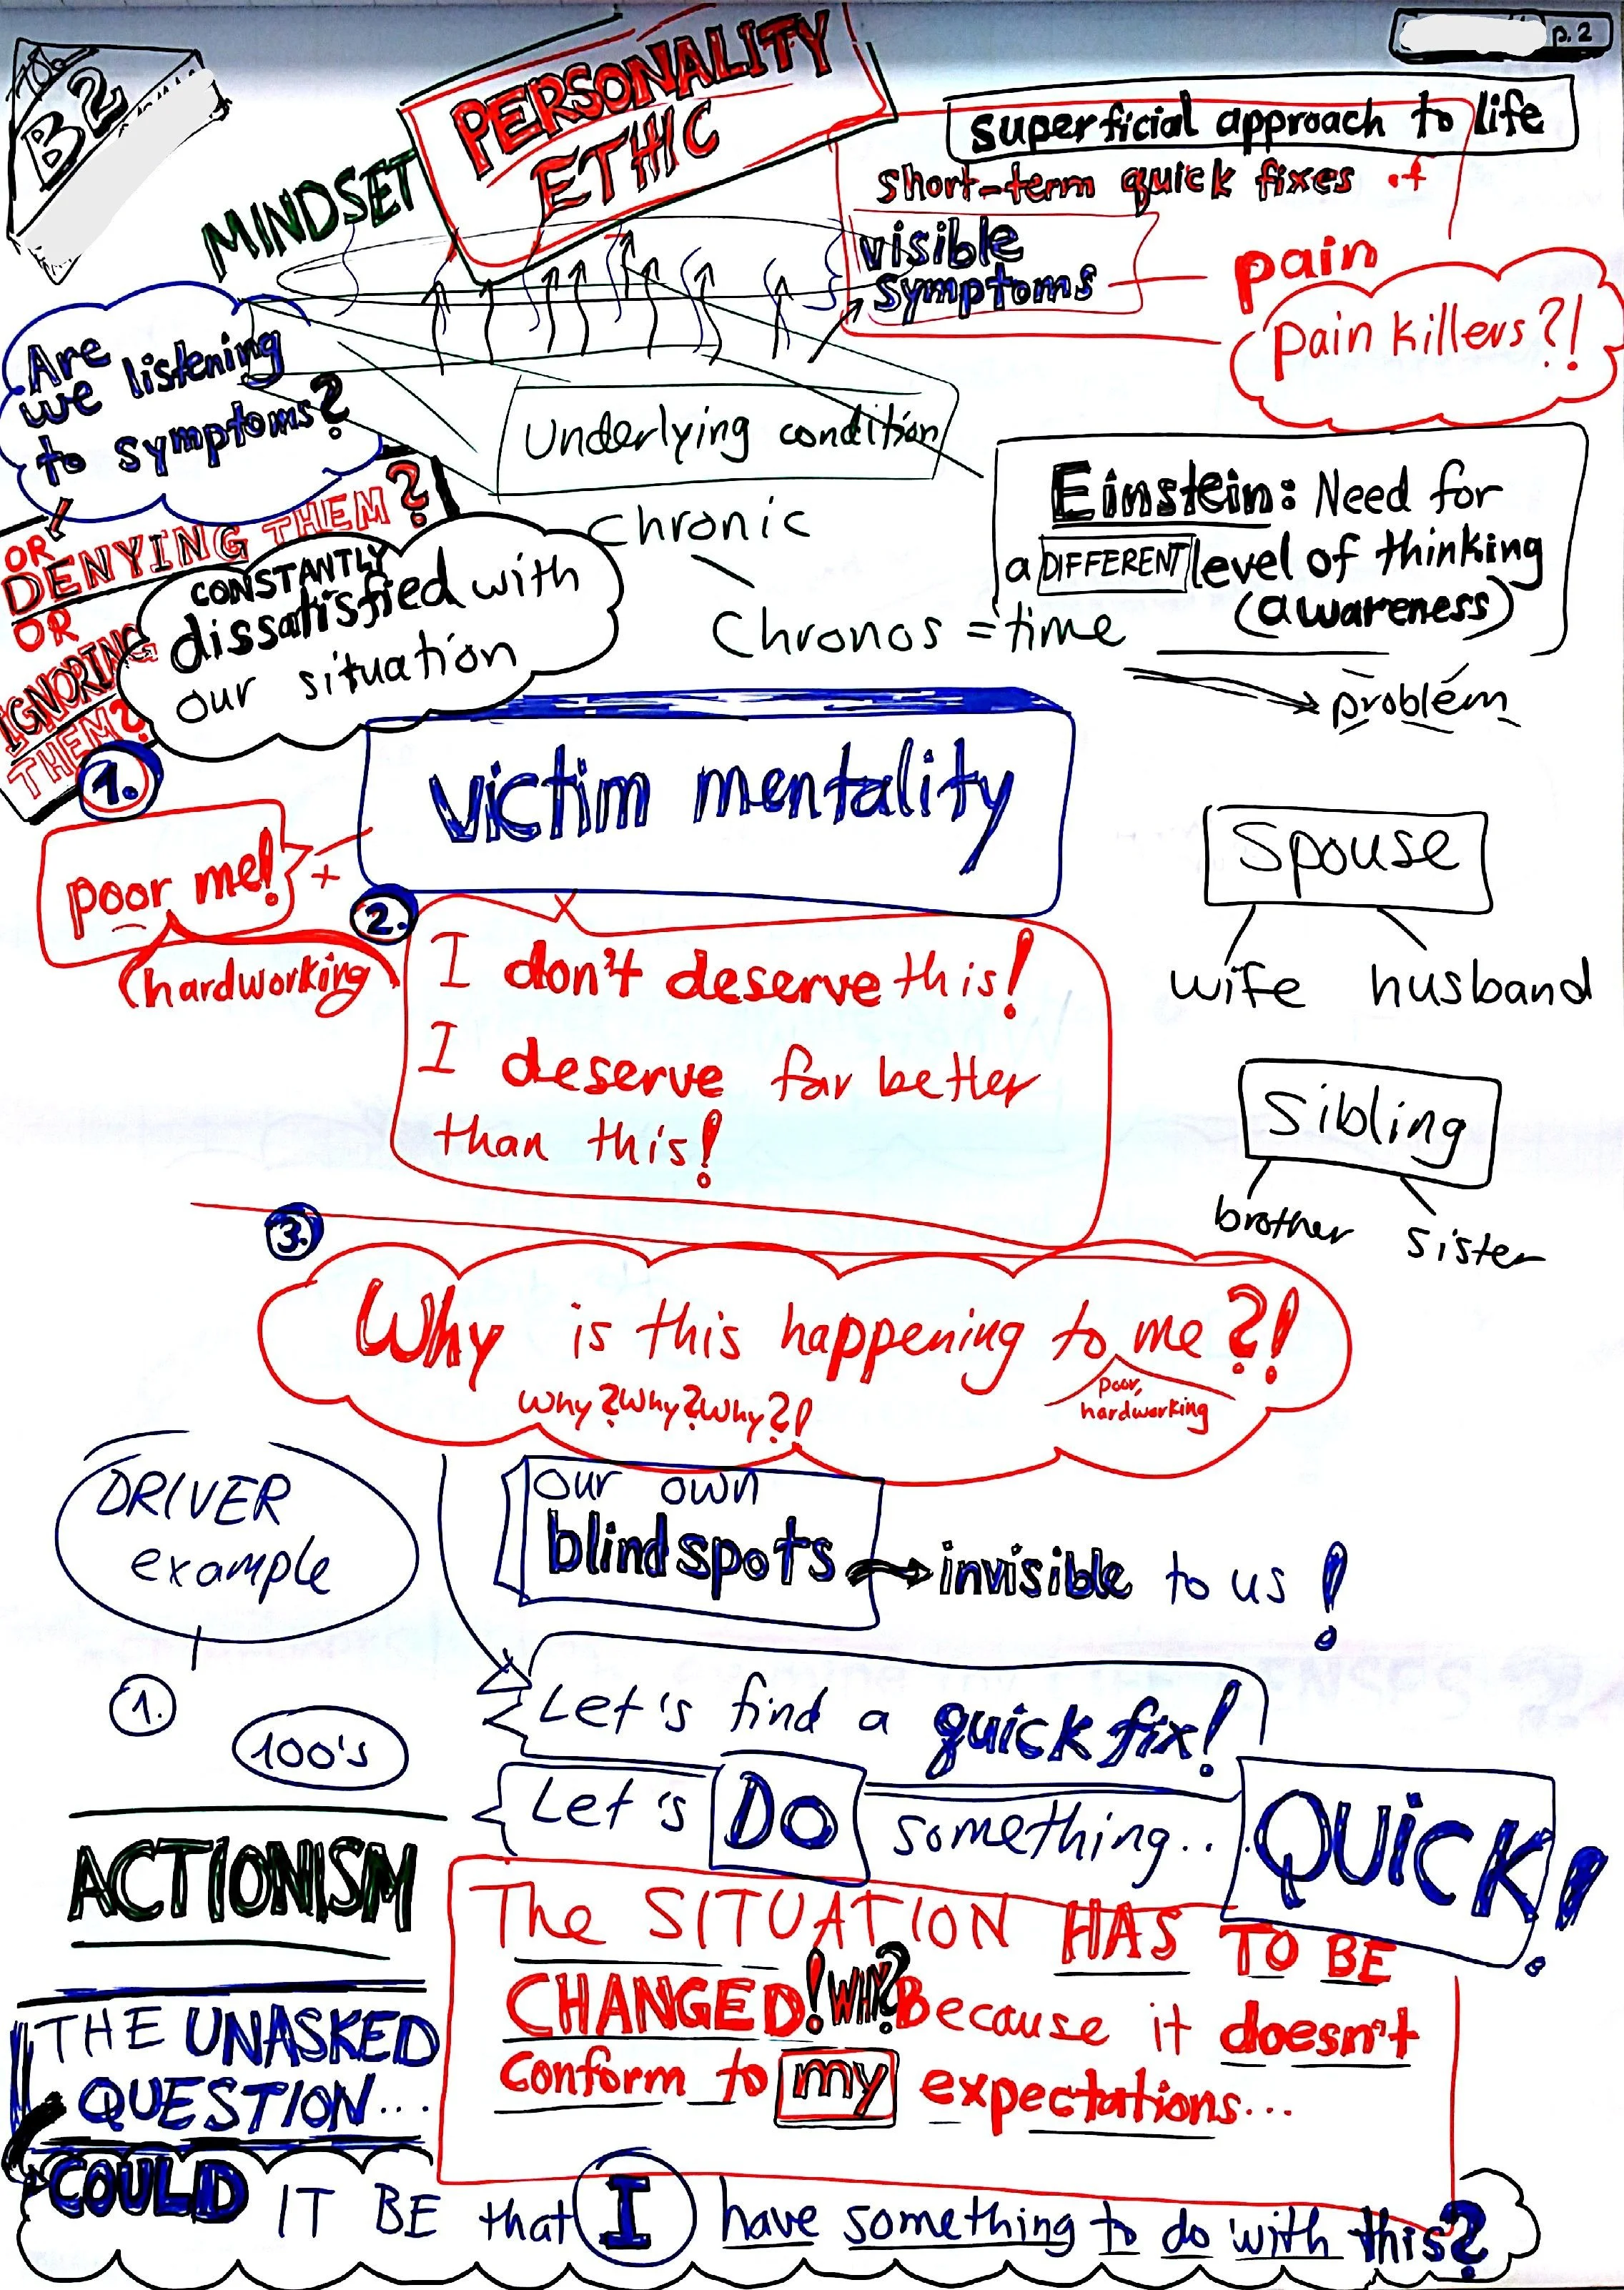 B2
p. 2
MINDSET
PERSONALITY
ETHIC
superficial approach to life
short-term quick fixes of
visible
symptoms
pain
pain killers?!
Are
we listening
to symptoms?
OR
DENYING THEM?
OR
IGNORING
THEM?
Underlying condition
chronic
Chronos = time
Einstein: Need for
a DIFFERENT level of thinking
(awareness)
problem
CONSTANTLY
dissatisfied with
our situation
1.
victim mentality
poor me!
+
(hardworking)
2.
I don't deserve this!
I deserve far better
than this!
Spouse
wife husband
Sibling
brother sister
3.
Why is this happening to me?!
Why?Why?Why?!
poor,
hardworking
DRIVER
example
1.
100's
our own
blind spots
invisible to us!
Let's find a quick fix!
Let's DO something... QUICK!
ACTIONISM
The SITUATION HAS TO BE
CHANGED! WHY? Because it doesn't
conform to my expectations...
THE UNASKED
QUESTION...
COULD IT BE that I have something to do with this?